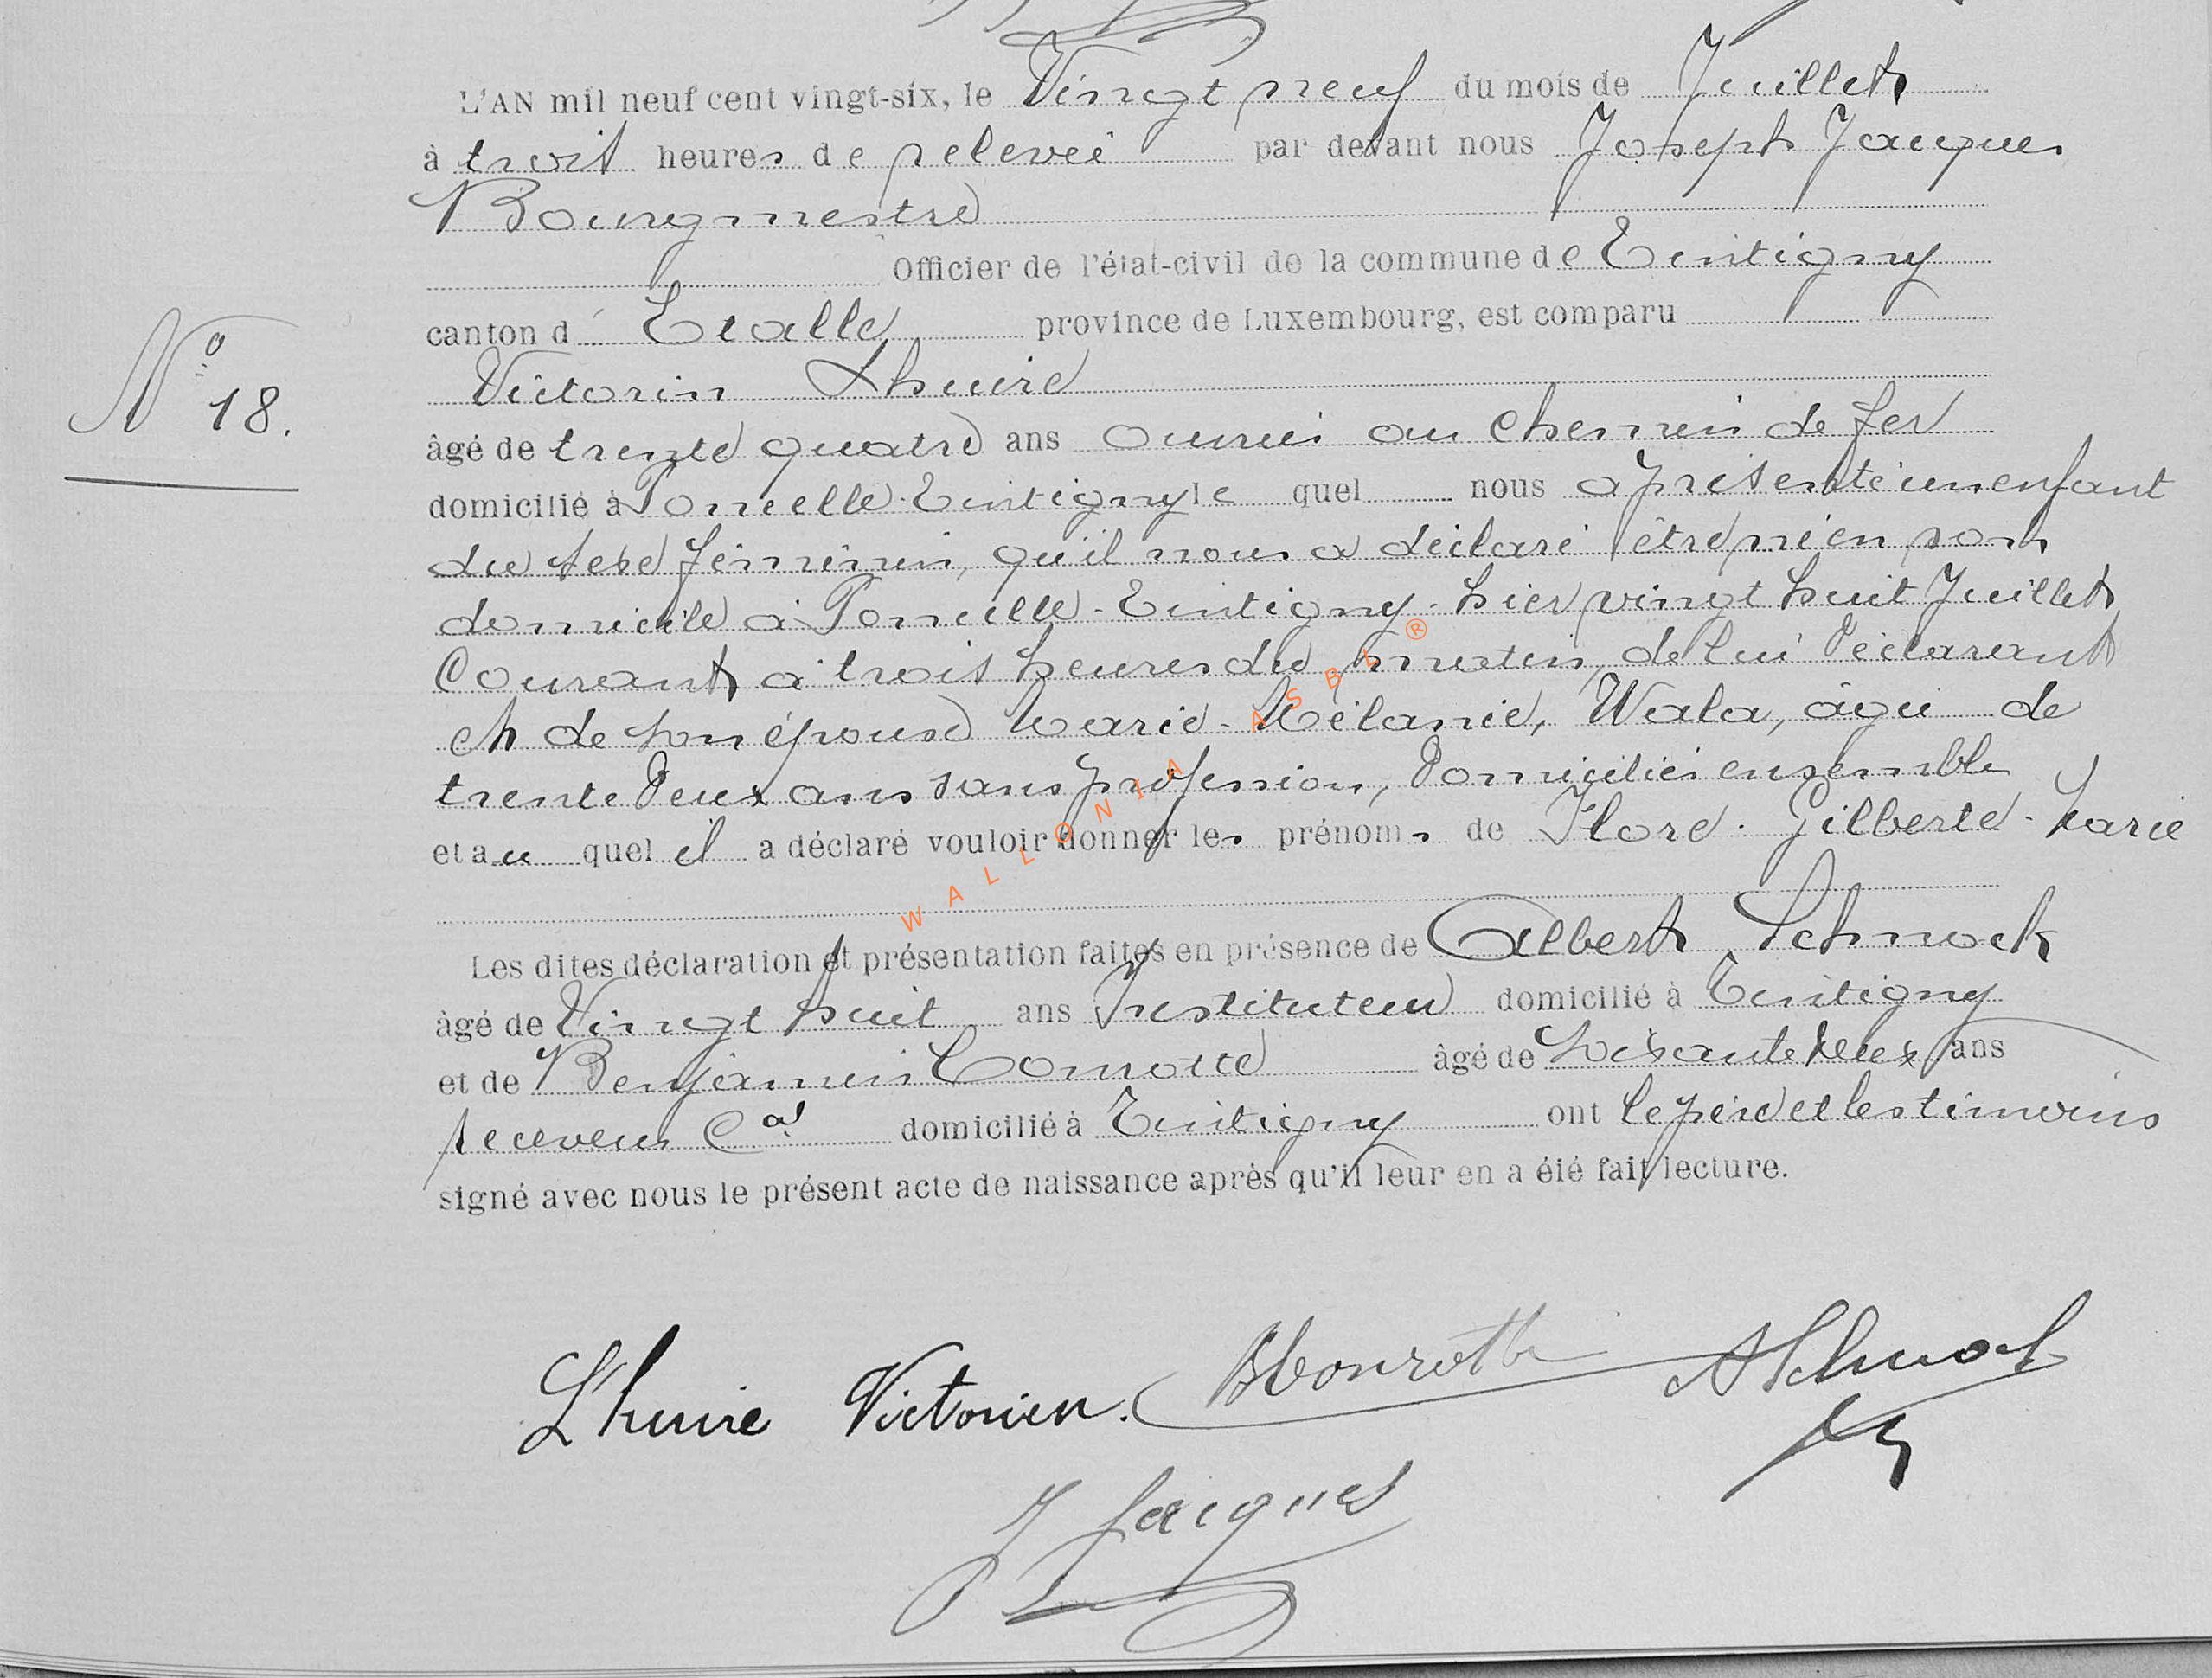 L'AN mil neuf cent vingt-six, le Vingt neuf du mois de Juillet
à trois heures de relevée par devant nous Joseph Jacques
Bourgmestre
Officier de l'état-civil de la commune de Tintigny
canton d'Etalle province de Luxembourg, est comparu
N° 18.
Victorin Lhuire
âgé de trente quatre ans ouvrier au chemin de fer
domicilié à Poncelle-Tintigny lequel nous a présenté un enfant
du sexe féminin, qu'il nous a déclaré être né en son
domicile à Poncelle-Tintigny. hier vingt huit Juillet
Courant à trois heures du matin, de lui Déclarant
et de son épouse Marie-Mélanie, Wala, âgée de
trente Deux ans sans profession, Domiciliés ensemble
et au quel il a déclaré vouloir donner les prénoms de Flore. Gilberte. Marie
WALLONIA ASBL ®
Les dites déclaration et présentation faites en présence de Albert Schnock
âgé de Vingt huit ans Instituteur domicilié à Tintigny
et de Benjamin âgé de soixante deux ans
receveur Cal domicilié à Tintigny ont le père et les témoins
signé avec nous le présent acte de naissance après qu'il leur en a été fait lecture.
L'huire Victorien. ASchnock
J Jacques